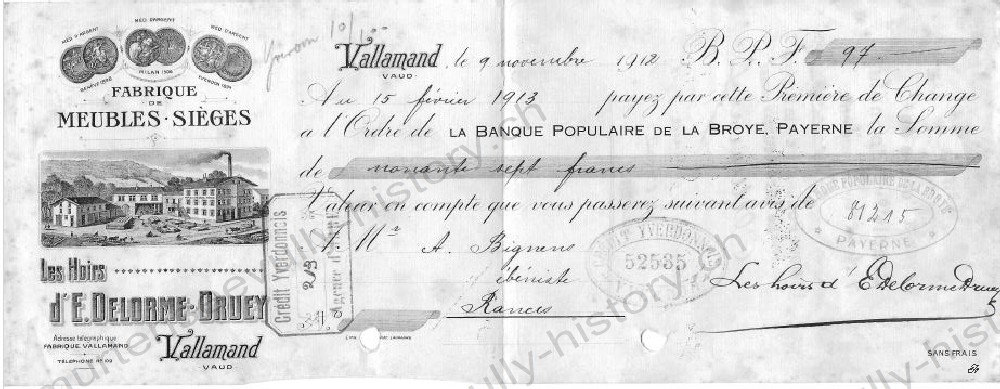 MED D'ARGENT
MED D'ARGENT
MED D'ARGENT
GENÈVE 1896
MILAN 1906
FABRIQUE
DE
MEUBLES - SIÈGES
Les Hoirs
d'E. DELORME-DRUEY
Adresse télégraphique
FABRIQUE. VALLAMAND
TÉLÉPHONE Nº 09
Vallamand
VAUD
Vallamand
VAUD
, le 9 novembre 1912 B. P. F. 97.-
Au 15 février 1913 payez par cette Première de Change
a l'Ordre de LA BANQUE POPULAIRE DE LA BROYE, PAYERNE la Somme
de nonante sept francs
Valeur en compte que vous passerez suivant avis de
A Mr A. Bignens
ébéniste
Rances
Les hoirs d'E. Delorme Druey
Crédit Yverdonnois
CRÉDIT YVERDONNOIS
52535
BANQUE POPULAIRE DE LA BROYE
81215
PAYERNE
SANS FRAIS